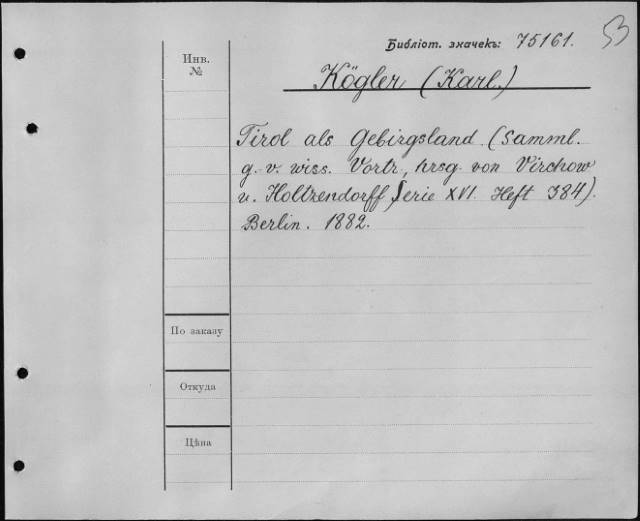 53
Библіот. значекъ: 75161.
Инв.
№
Kögler (Karl.)
Tirol als Gebirgsland (Samml.
g. v. wiss. Vortr., hrsg. von Virchow
u. Holtzendorff, Serie XVI. Heft 384).
Berlin. 1882.
По заказу
Откуда
Цѣна